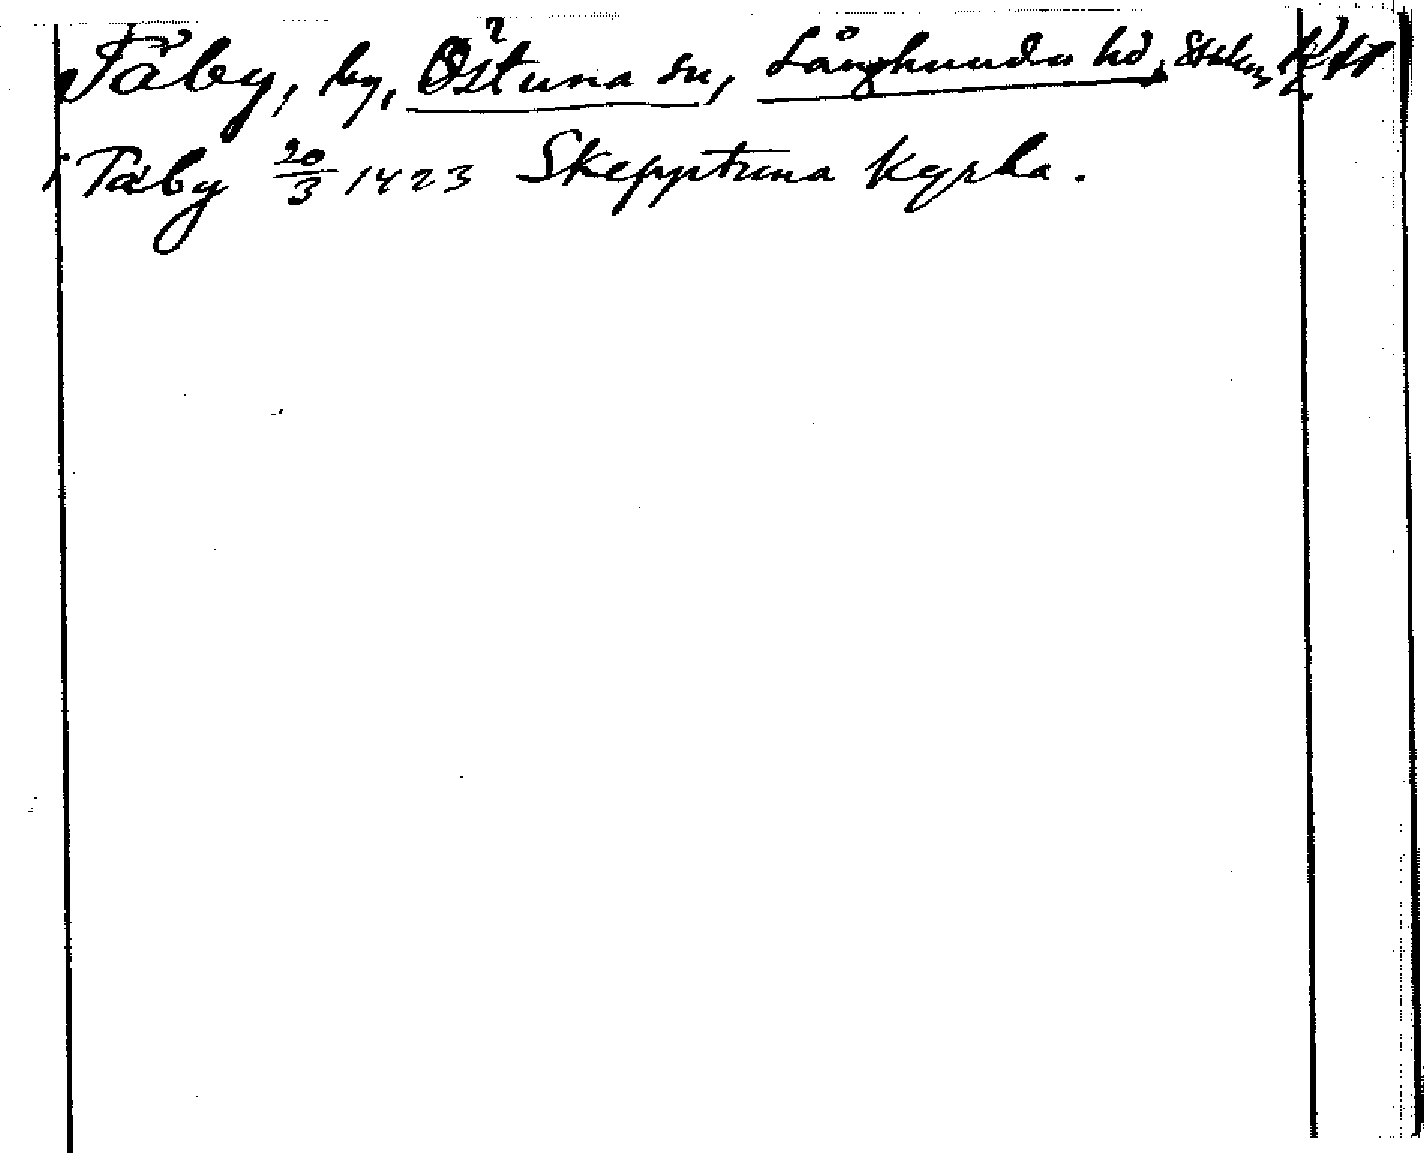 Täby, by, Östuna sn, Långhundra hd, Sthlm
i Täby 20/3 1423 Skepptuna kyrka.